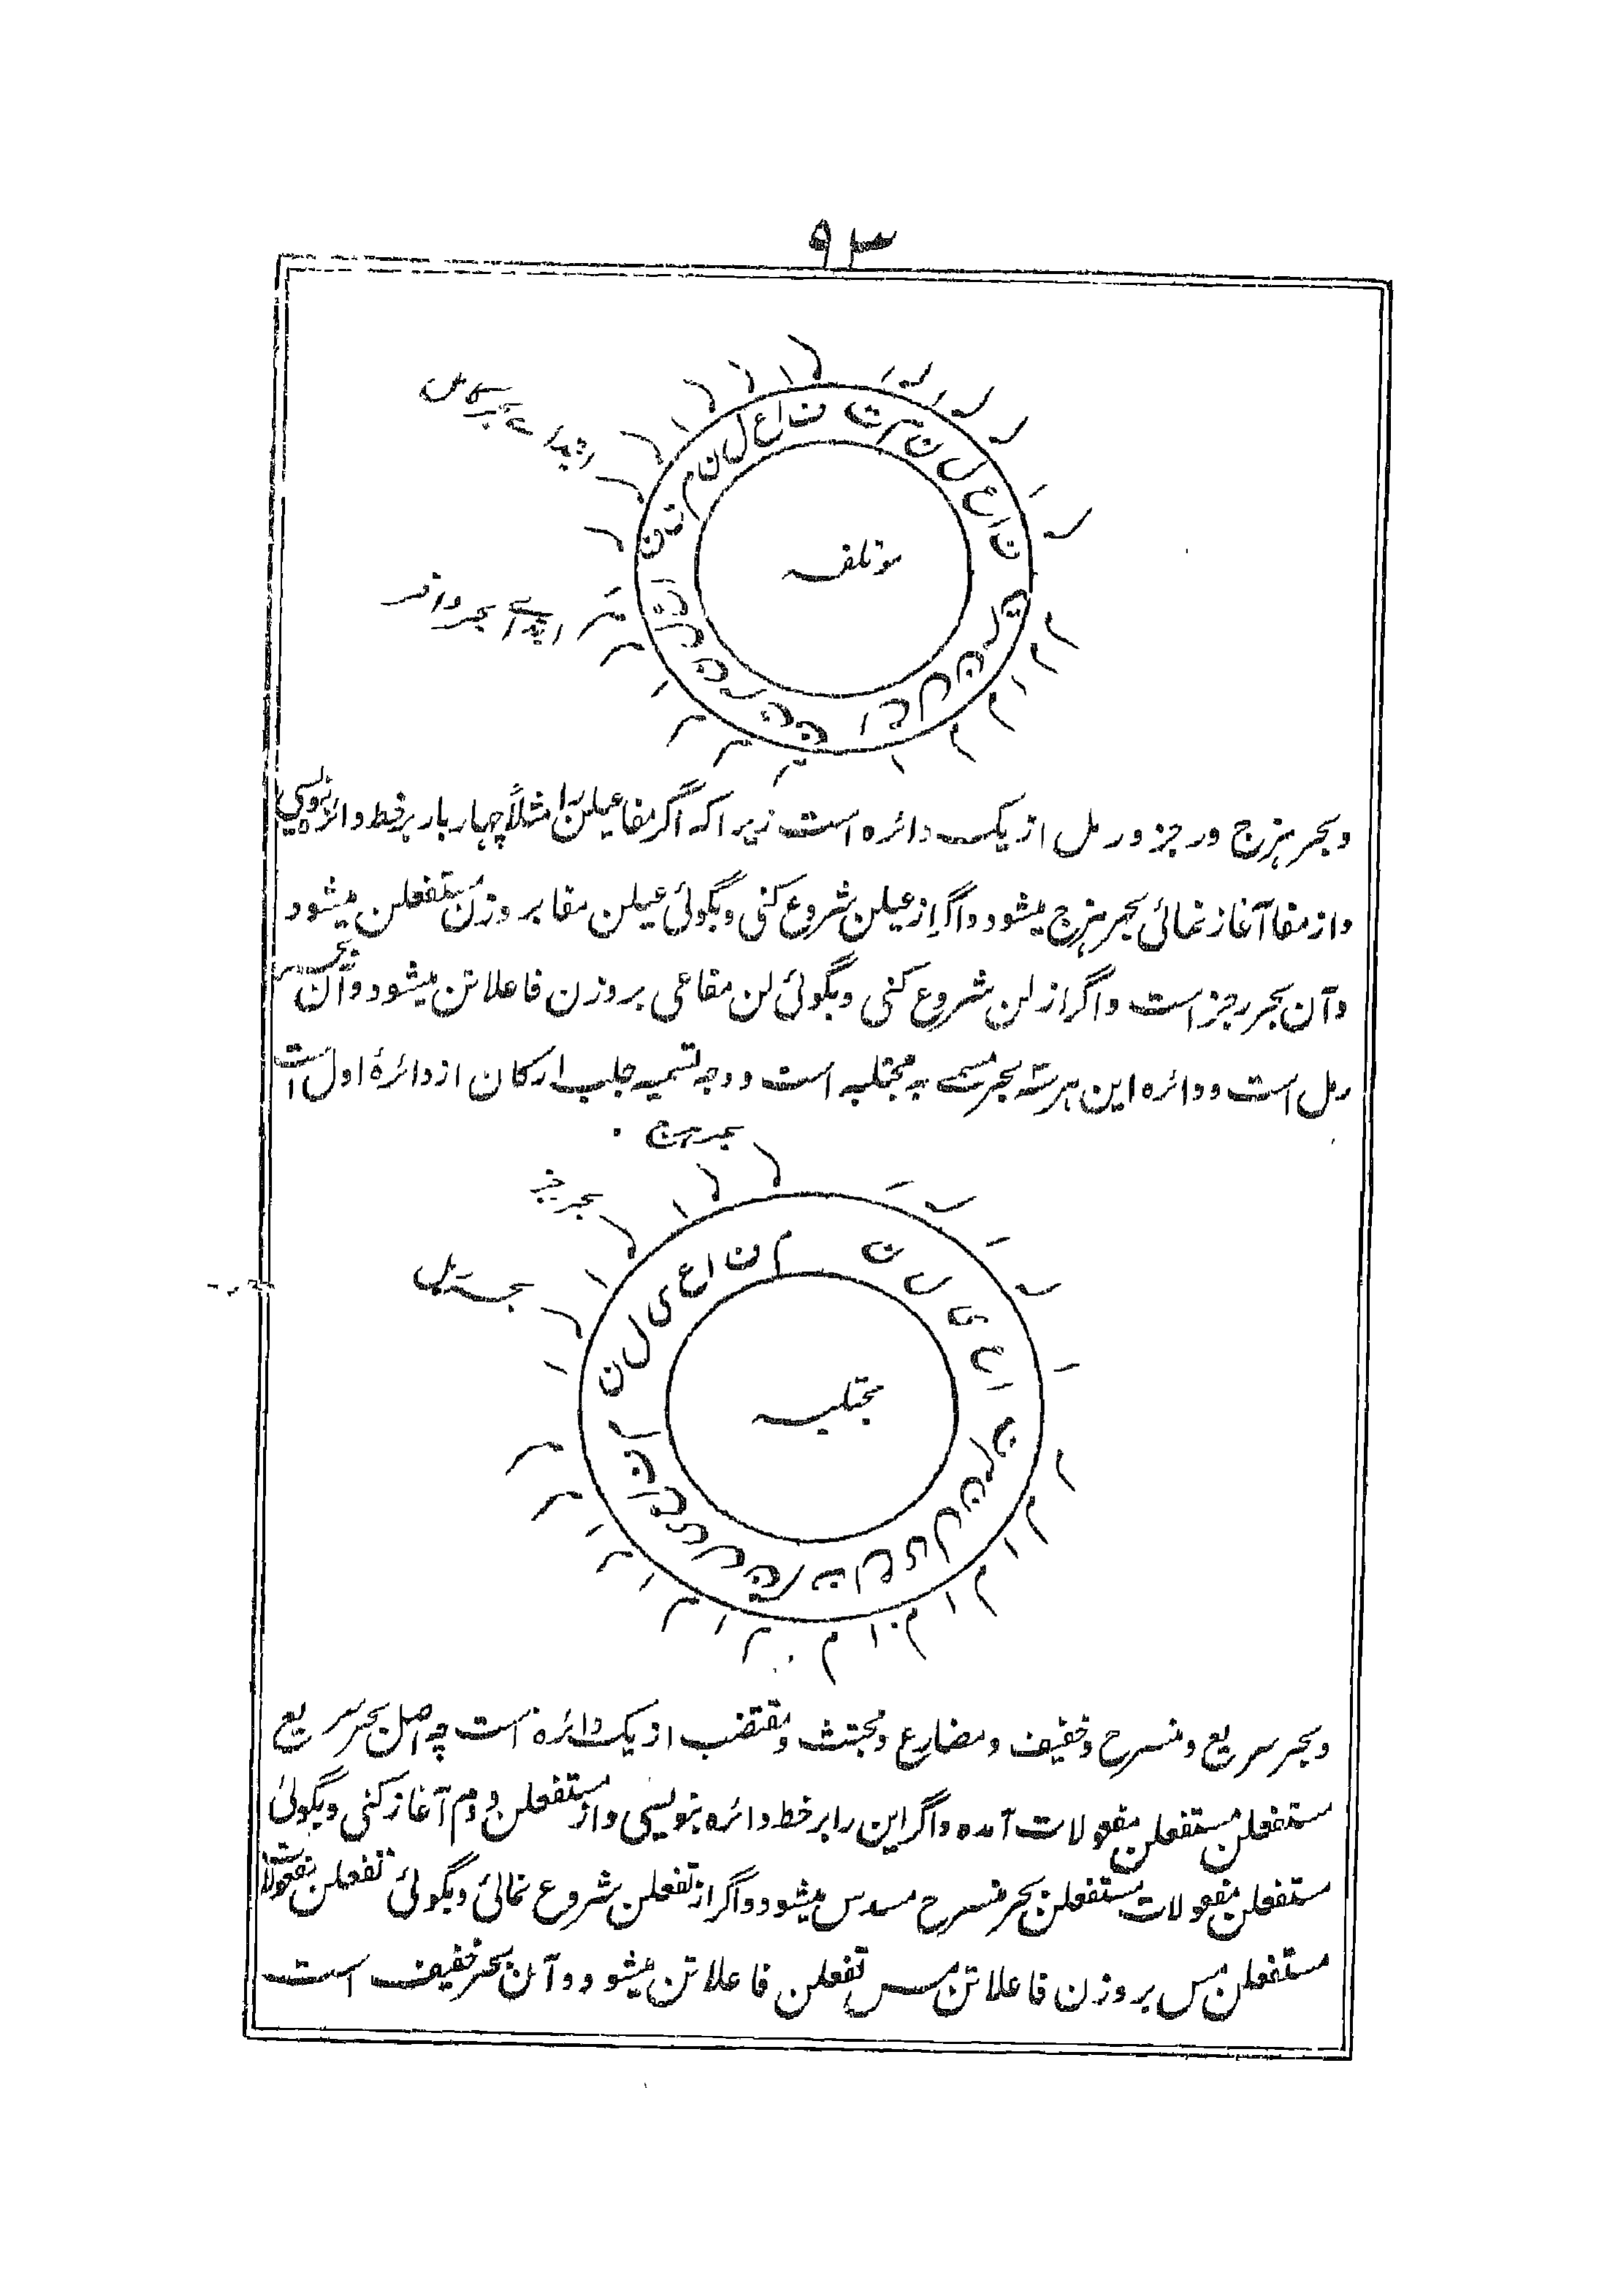 ٩٣
ابتدائے بحر کامل
ابتدائے بحر وافر
موتلفہ
و بحر ہزج و رجز و رمل از یک دائرہ است زیرا کہ اگر مفاعیلن را مثلاً چہار بار بر خط دائرہ نویسی
و از مفا آغاز نمائی بحر ہزج میشود و اگر از عیلن شروع کنی و بگوئی عیلن مفا بر وزن مستفعلن میشود
و آن بحر رجز است و اگر از لن شروع کنی و بگوئی لن مفاعی بر وزن فاعلاتن میشود و آن بحر
رمل است و دائرہ این ہر سہ بحر مسمے بہ مجتلبہ است و وجہ تسمیہ جلب ارکان از دائرۂ اول است
بحر ہزج
بحر رجز
بحر رمل
مجتلبہ
و بحر سریع و منسرح و خفیف و مضارع و مجتث و مقتضب از یک دائرہ است چہ اصل بحر سریع
مستفعلن مستفعلن مفعولات آمدہ و اگر این را بر خط دائرہ بنویسی و از مستفعلن دوم آغاز کنی و بگوئی
مستفعلن مفعولات مستفعلن بحر منسرح مسدس میشود و اگر از تفعلن شروع نمائی و بگوئی تفعلن مفعولات
مستفعلن مس بر وزن فاعلاتن مس تفعلن فاعلاتن میشود و آن بحر خفیف است